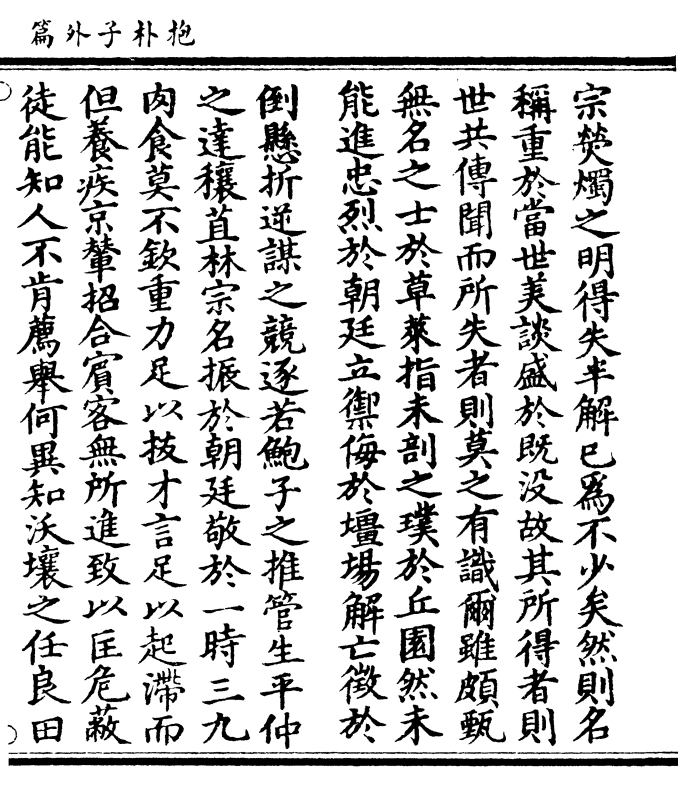 抱朴子外篇
宗熒燭之明得失半解已爲不少矣然則名
稱重於當世美談盛於既没故其所得者則
世共傳聞而所失者則莫之有識爾雖頗甄
無名之士於草萊指未剖之璞於丘園然未
能進忠烈於朝廷立禦侮於壃場解亡徵於
倒懸折逆謀之競逐若鮑子之推管生平仲
之達穰苴林宗名振於朝廷敬於一時三九
肉食莫不欽重力足以拔才言足以起滯而
但養疾京輦招合賓客無所進致以匡危蔽
徒能知人不肯薦舉何異知沃壤之任良田